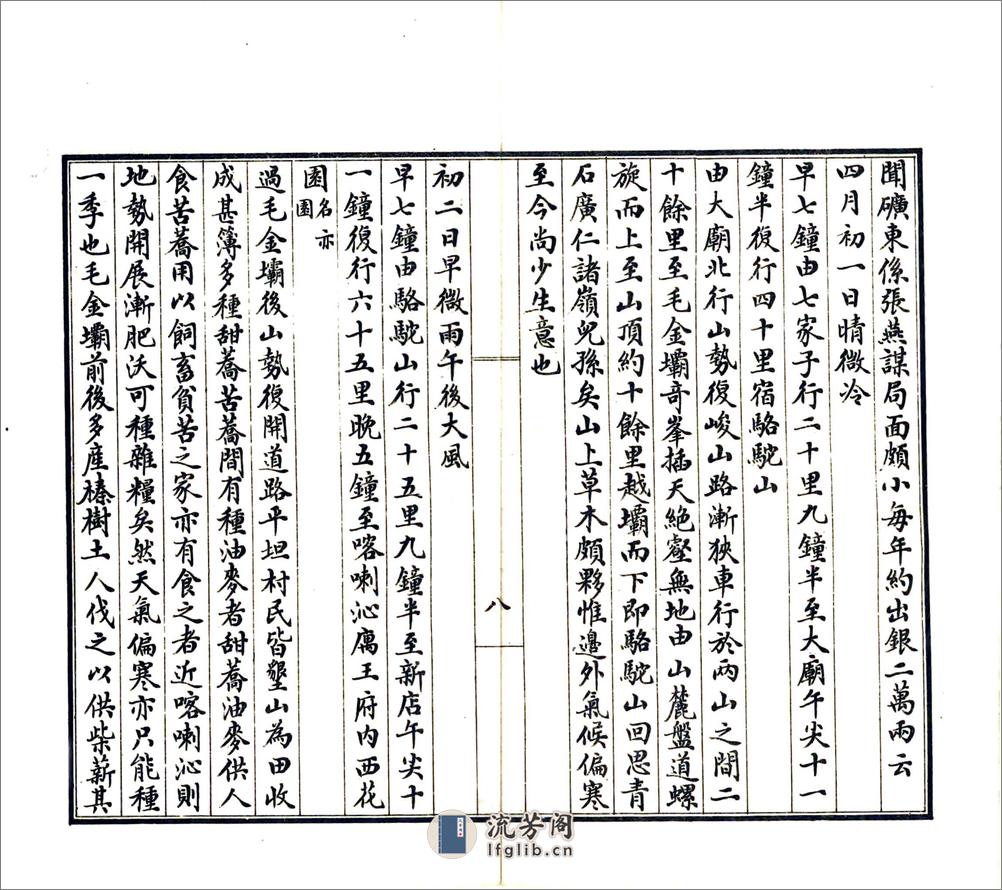 聞礦東係張燕謀局面頗小每年約出銀二萬兩云
四月初一日晴微冷
早七鐘由七家子行二十里九鐘半至大廟午尖十一
鐘半復行四十里宿駱駝山
由大廟北行山勢復峻山路漸狹車行於兩山之間二
十餘里至毛金壩奇峯插天絶壑無地由山麓盤道螺
旋而上至山頂約十餘里越壩而下即駱駝山回思青
石廣仁諸嶺兒孫矣山上草木頗夥惟邊外氣候偏寒
至今尚少生意也
八
初二日早微雨午後大風
早七鐘由駱駝山行二十五里九鐘半至新店午尖十
一鐘復行六十五里晚五鐘至喀喇沁腐王府内西花
園名亦
園
過毛金壩後山勢復開道路平坦村民皆墾山為田收
成甚簿多種甜蕎苦蕎間有種油麥者甜蕎油麥供人
食苦蕎用以飼畜貧苦之家亦有食之者近喀喇沁則
地勢開展漸肥沃可種雜糧矣然天氣偏寒亦只能種
一季也毛金壩前後多產榛樹土人伐之以供柴薪其
流芳阁
lfglib.cn